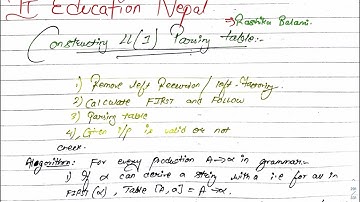 IT Education Nepal
→ Rashika Balami.
Constructing LL(1) Parsing table:-
1) Remove left Recursion / left-factoring
2) Calculate FIRST and Follow
3) Parsing table
4) Given i/p is valid or not
check.
Algorithm: For every production A→α in grammar:-
1) If α can derive a string with a i.e for all in
FIRST(α), Table [A, a] = A→α.